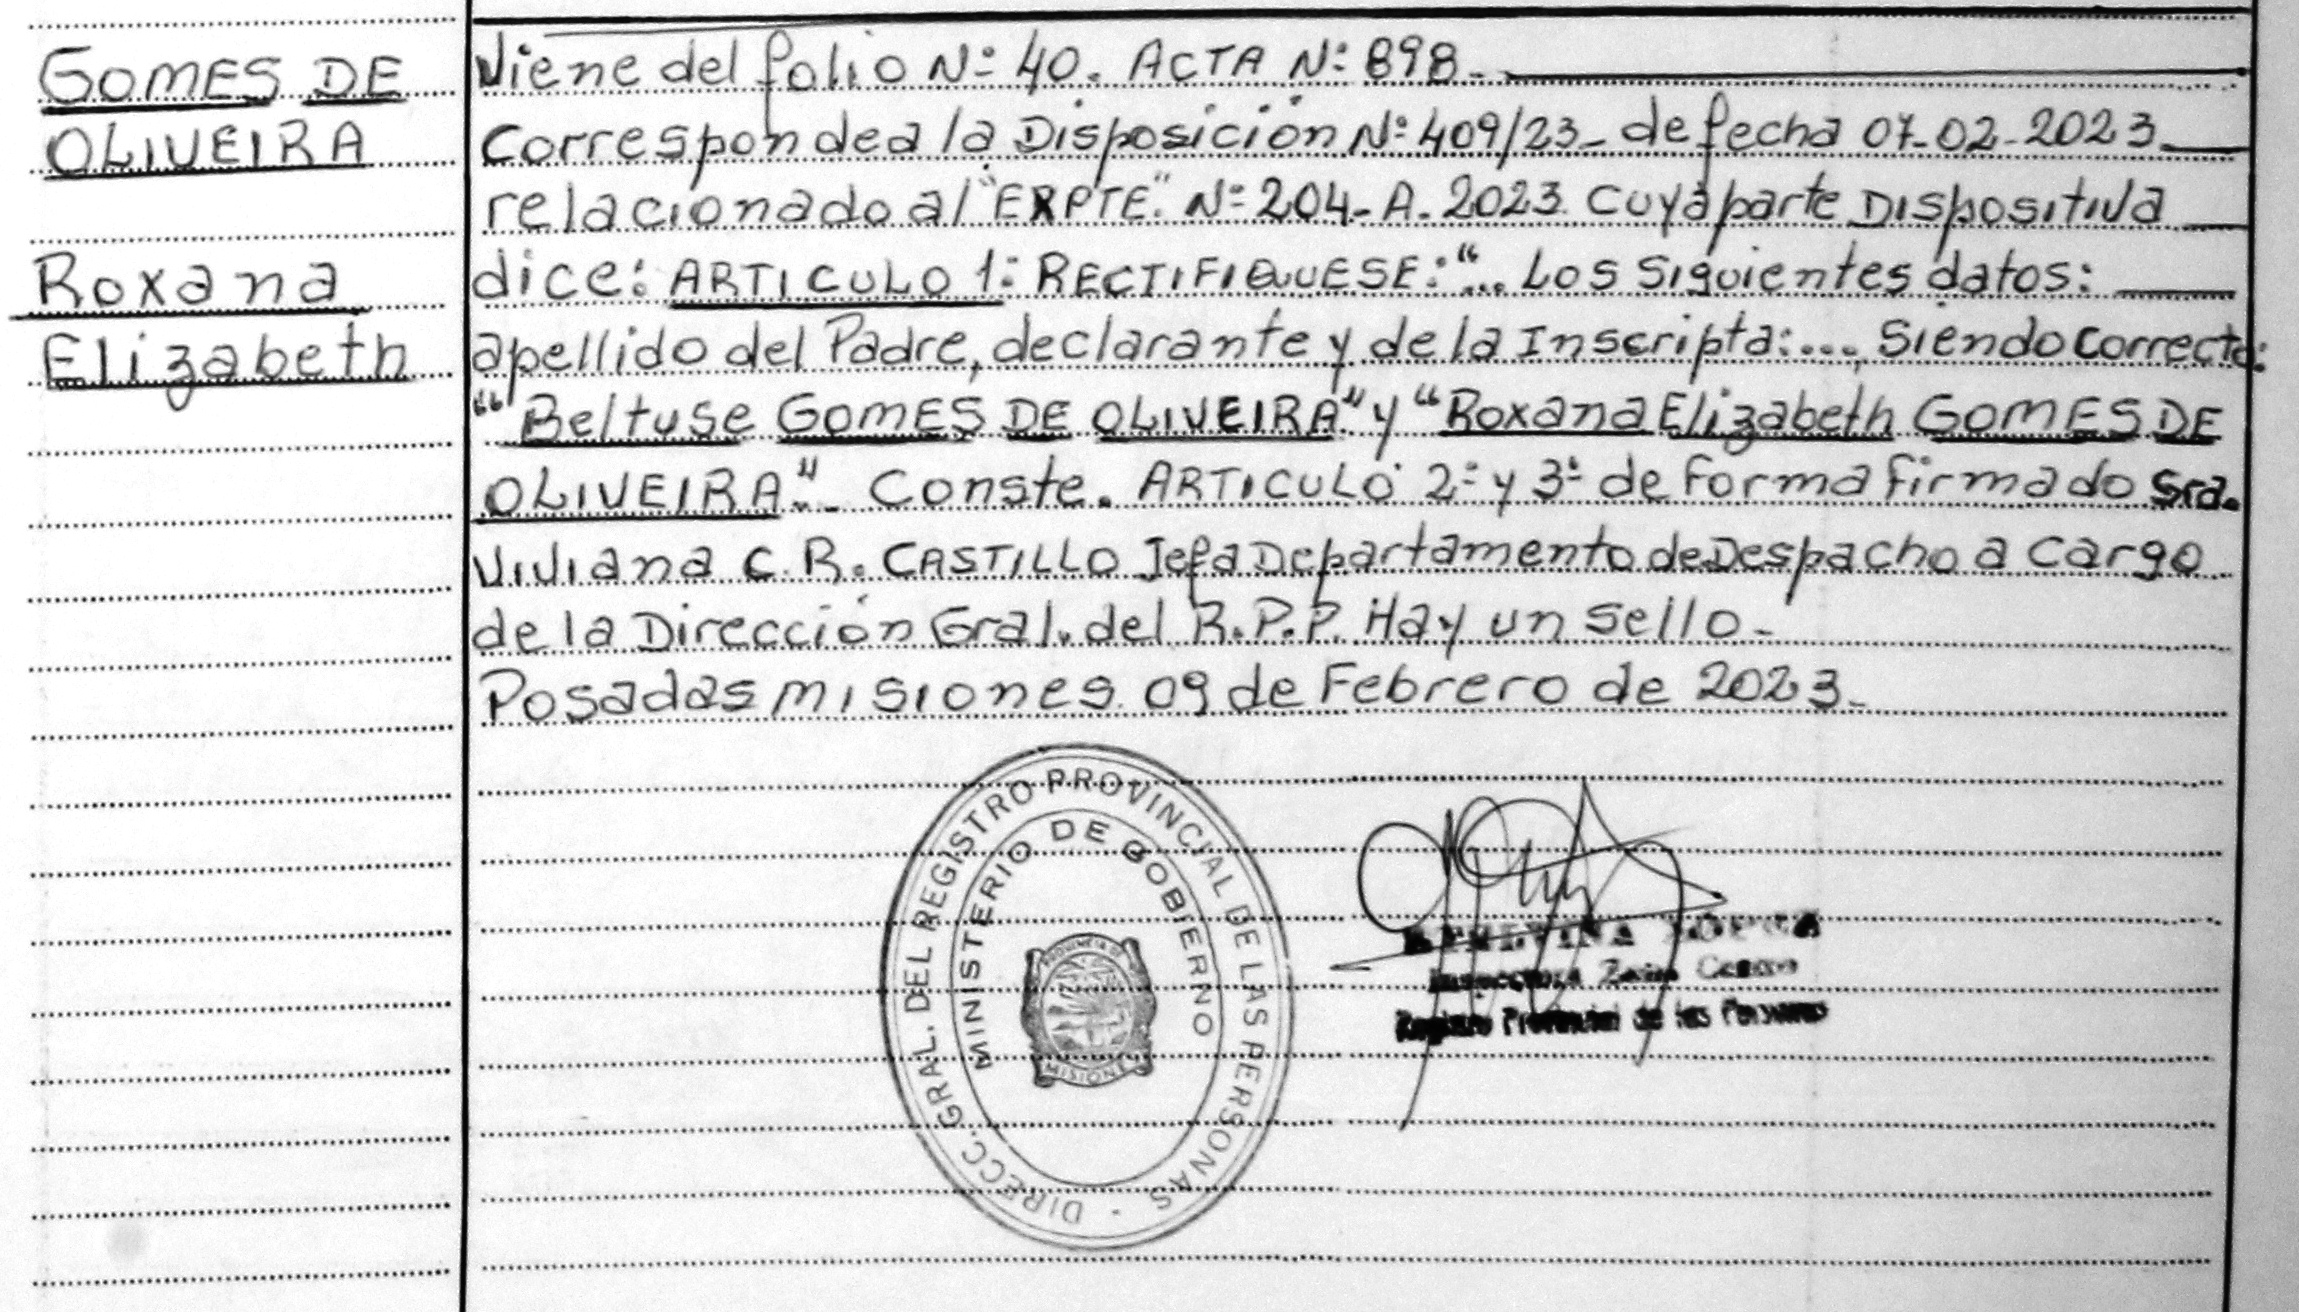 GOMES DE
OLIVEIRA
Roxana
Elizabeth
Viene del folio Nº 40. ACTA Nº 898.
Corresponde a la Disposición Nº 409/23_ de fecha 07-02-2023
relacionado al "EXPTE". Nº 204-A. 2023. Cuya parte Dispositiva
dice: ARTICULO 1: RECTIFIQUESE: "... Los Siguientes datos:
apellido del Padre, declarante y de la Inscripta:..., Siendo Correcto:
"Beltuse GOMES DE OLIVEIRA" y "Roxana Elizabeth GOMES DE
OLIVEIRA". Conste. ARTICULO 2º y 3º de forma firmado Sra.
Viviana C. R. CASTILLO Jefa Departamento de Despacho a Cargo
de la Dirección Gral. del R.P.P. Hay un Sello-
Posadas misiones 09 de Febrero de 2023-
DIRECC. GRAL. DEL REGISTRO PROVINCIAL DE LAS PERSONAS
MINISTERIO DE GOBIERNO
PROVINCIA DE
MISIONES
Registro Provincial de las Personas